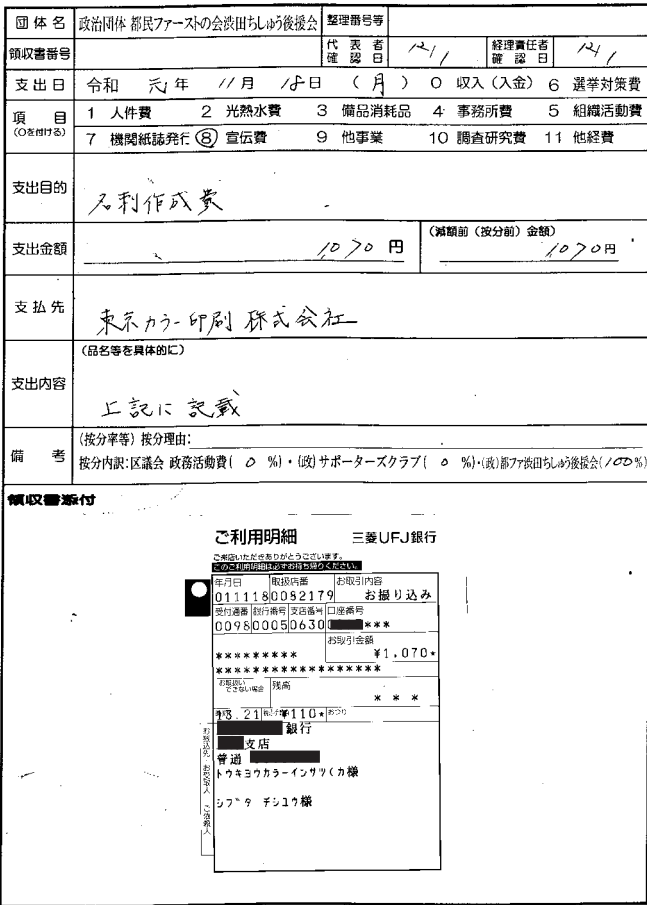 団体名 政治団体 都民ファーストの会渋田ちしゅう後援会 整理番号等
領収書番号 代表者確認日 12/1 経理責任者確認日 12/1
支出日 令和 元年 11月 18日 (月) 0 収入(入金) 6 選挙対策費
項目 (○を付ける) 1 人件費 2 光熱水費 3 備品消耗品 4 事務所費 5 組織活動費
7 機関紙誌発行 ⑧ 宣伝費 9 他事業 10 調査研究費 11 他経費
支出目的 名刺作成費
支出金額 1,070円 (減額前(按分前)金額) 1,070円
支払先 東京カラー印刷 株式会社
(品名等を具体的に)
支出内容 上記に記載
備考 (按分率等) 按分理由:
按分内訳:区議会 政務活動費( 0 %)・(政)サポーターズクラブ( 0 %)・(政)都ファ渋田ちしゅう後援会(100%)
領収書添付
ご利用明細 三菱UFJ銀行
ご来店いただきありがとうございます。
このご利用明細は必ずお持ち帰りください。
年月日 取扱店番 お取引内容
011118 0082179 お振り込み
受付通番 銀行番号 支店番号 口座番号
0098 0005 0630 ***
お取引金額
********* ¥1,070*
******************
お取扱いできない場合 残高
* * *
13.21 ¥110* おつり
銀行
支店
普通
トウキヨウカラーインサツ(カ様
シブタ チシユウ様
お振込先・お受取人 ご依頼人